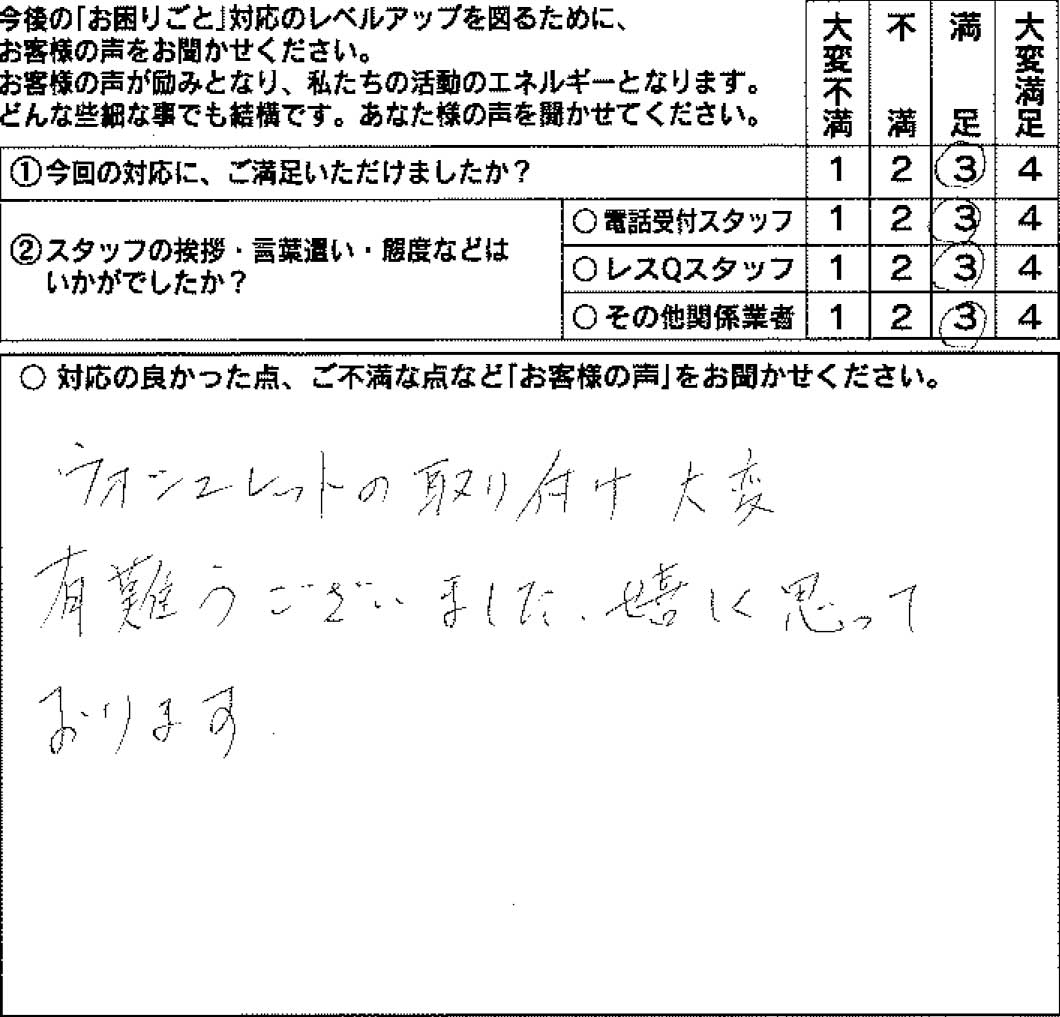 今後の「お困りごと」対応のレベルアップを図るために、
お客様の声をお聞かせください。
お客様の声が励みとなり、私たちの活動のエネルギーとなります。
どんな些細な事でも結構です。あなた様の声を聞かせてください。
大変不満 不満 満足 大変満足
①今回の対応に、ご満足いただけましたか？ 1 2 3 4
②スタッフの挨拶・言葉遣い・態度などは
いかがでしたか？
○電話受付スタッフ 1 2 3 4
○レスQスタッフ 1 2 3 4
○その他関係業者 1 2 3 4
○ 対応の良かった点、ご不満な点など「お客様の声」をお聞かせください。
ウオシュレットの取り付け大変
有難うございました、嬉しく思って
おります.